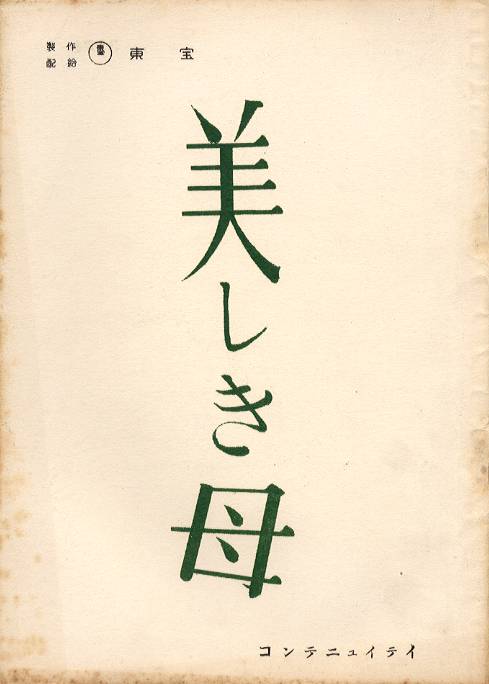 製作
配給
東宝
美しき母
コンテニュイテイ